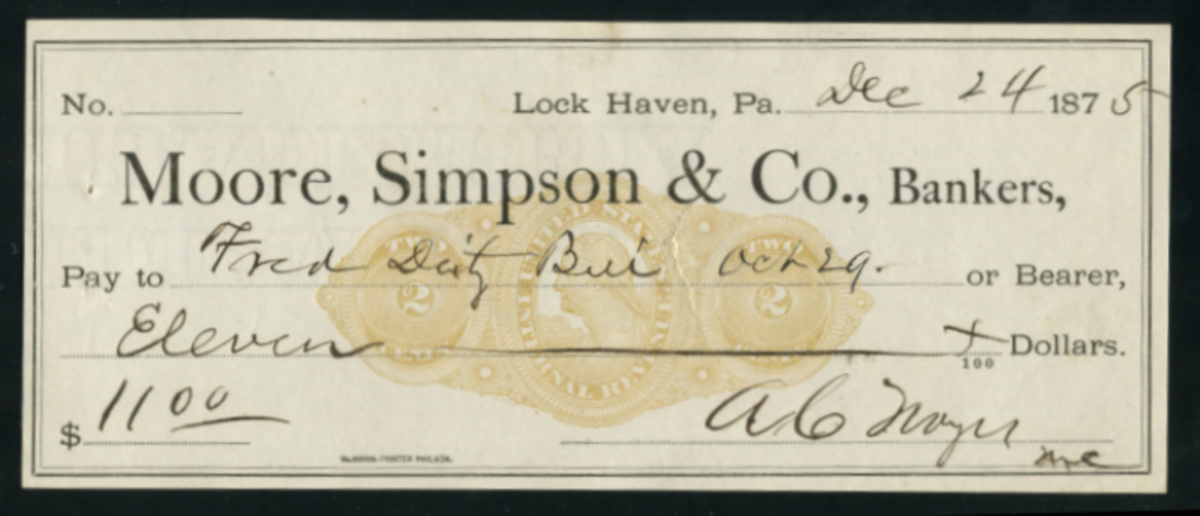 No. Lock Haven, Pa. Dec 24 1875
Moore, Simpson & Co., Bankers,
Pay to Fred Bill Oct 29. or Bearer,
Eleven x/100 Dollars.
$ 11 00
A C Noyes
TWO CENTS 2 UNITED STATES INTERNAL REVENUE TWO CENTS 2